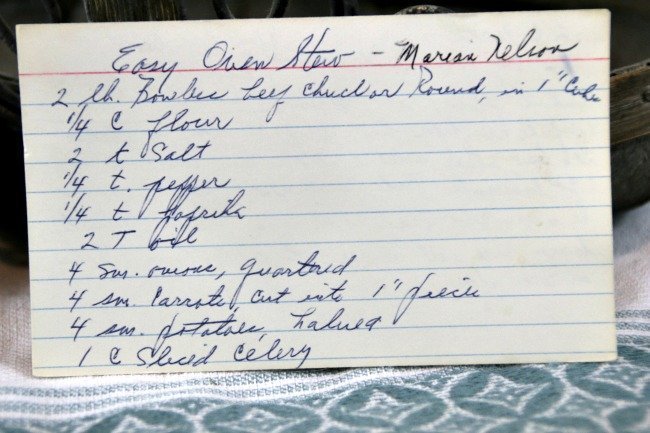 Easy Oven Stew - Marian Nelson
2 lb. Bonless beef chuck or Round, in 1" Cubes
1/4 C flour
2 t Salt
1/4 t. pepper
1/4 t paprika
2 T oil
4 sm. onions, quartered
4 sm. Carrots, cut into 1" pieces
4 sm. potatoes, halved
1 C Sliced Celery